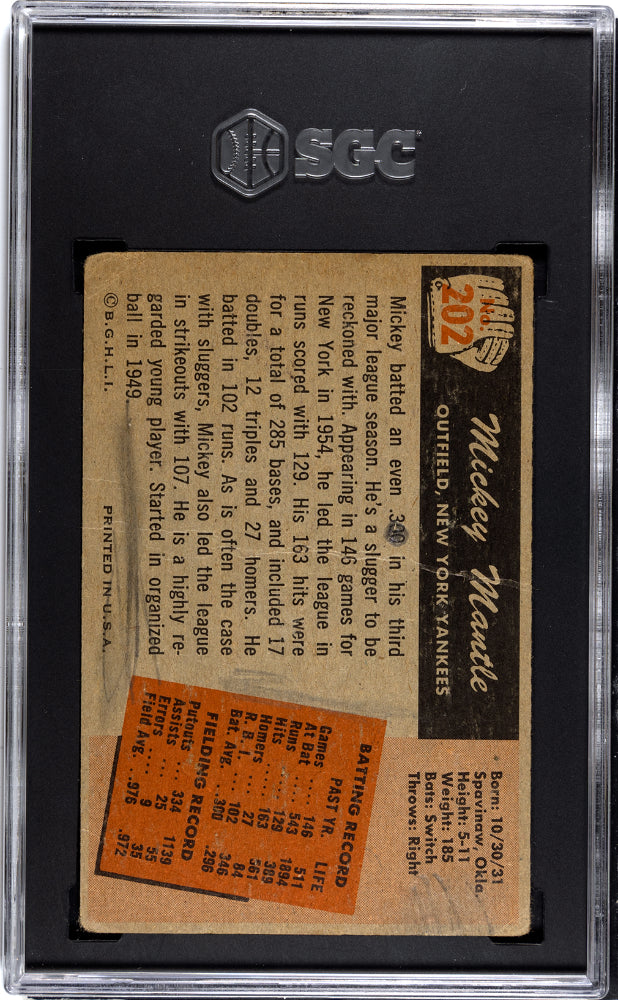 SGC
No.
202
Mickey Mantle
OUTFIELD, NEW YORK YANKEES
Born: 10/30/31
Spavinaw, Okla.
Height: 5-11
Weight: 185
Bats: Switch
Throws: Right
Mickey batted an even .300 in his third
major league season. He's a slugger to be
reckoned with. Appearing in 146 games for
New York in 1954, he led the league in
runs scored with 129. His 163 hits were
for a total of 285 bases, and included 17
doubles, 12 triples and 27 homers. He
batted in 102 runs. As is often the case
with sluggers, Mickey also led the league
in strikeouts with 107. He is a highly re-
garded young player. Started in organized
ball in 1949.
©B.G.H.L.I. PRINTED IN U.S.A.
BATTING RECORD
PAST YR. LIFE
Games .... 146 511
At Bat .... 543 1894
Runs .... 129 389
Hits .... 163 561
Homers .... 27 84
R. B. I. .... 102 346
Bat. Avg. ... .300 .296
FIELDING RECORD
Putouts .... 334 1139
Assists .... 25 55
Errors .... 9 35
Field Avg. ... .976 .972